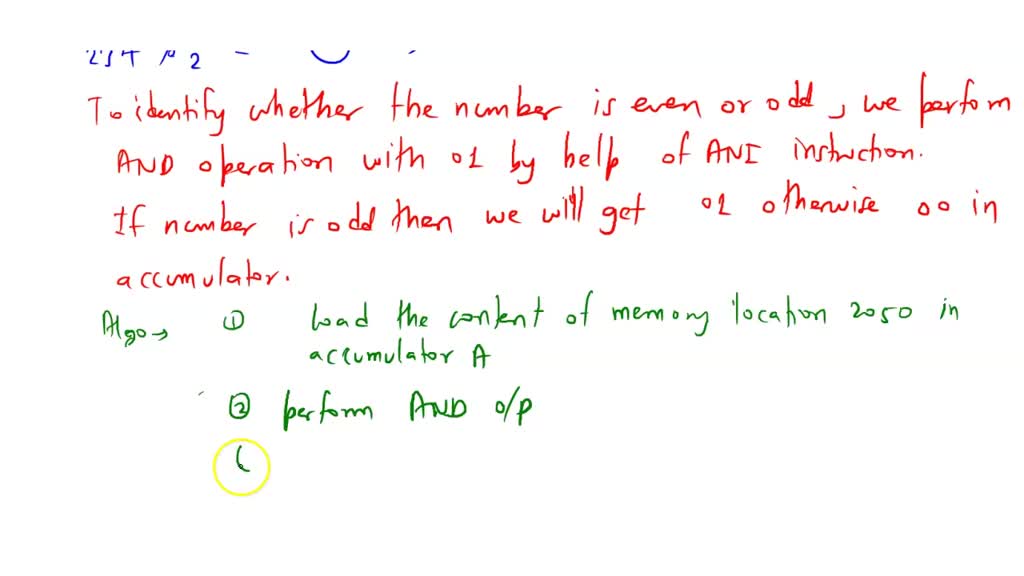 To identify whether the number is even or odd, we perfom
AND operation with 01 by help of ANI instruction.
If number is odd then we will get 01 otherwise 00 in
accumulator.
Algo → ① Load the content of memory location 2050 in
accumulator A
② perform AND o/p
(